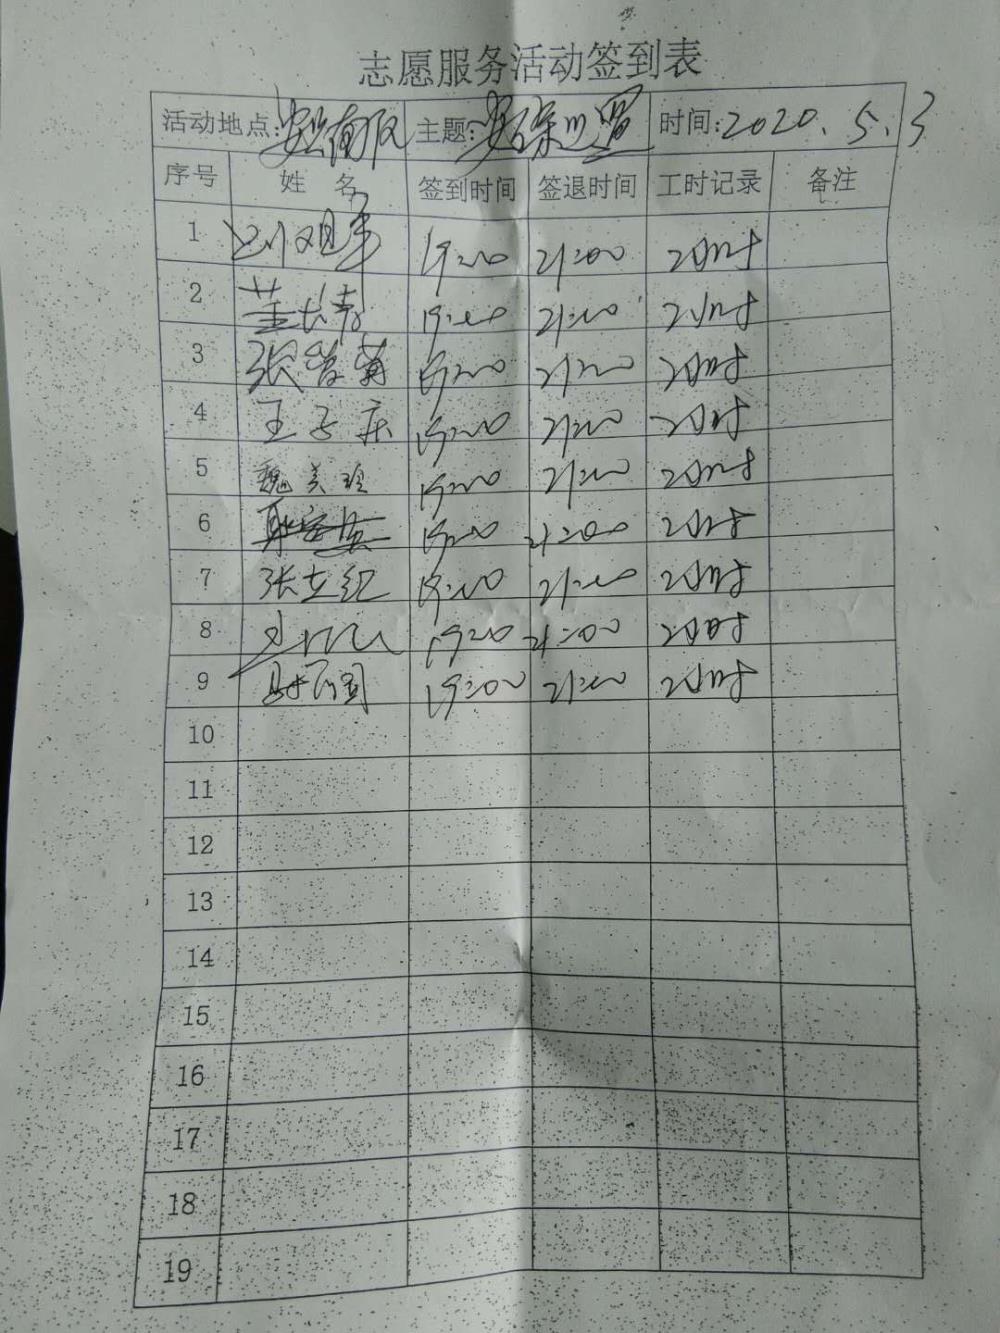 志愿服务活动签到表
活动地点: 主题: 时间:2020.5.3
序号 姓名 签到时间 签退时间 工时记录 备注
1 19:00 21:00 2小时
2 19:00 21:00 2小时
3 19:00 21:00 2小时
4 王子庆 19:00 21:00 2小时
5 魏美玲 19:00 21:00 2小时
6 19:00 21:00 2小时
7 张立红 19:00 21:00 2小时
8 19:00 21:00 2小时
9 19:00 21:00 2小时
10
11
12
13
14
15
16
17
18
19